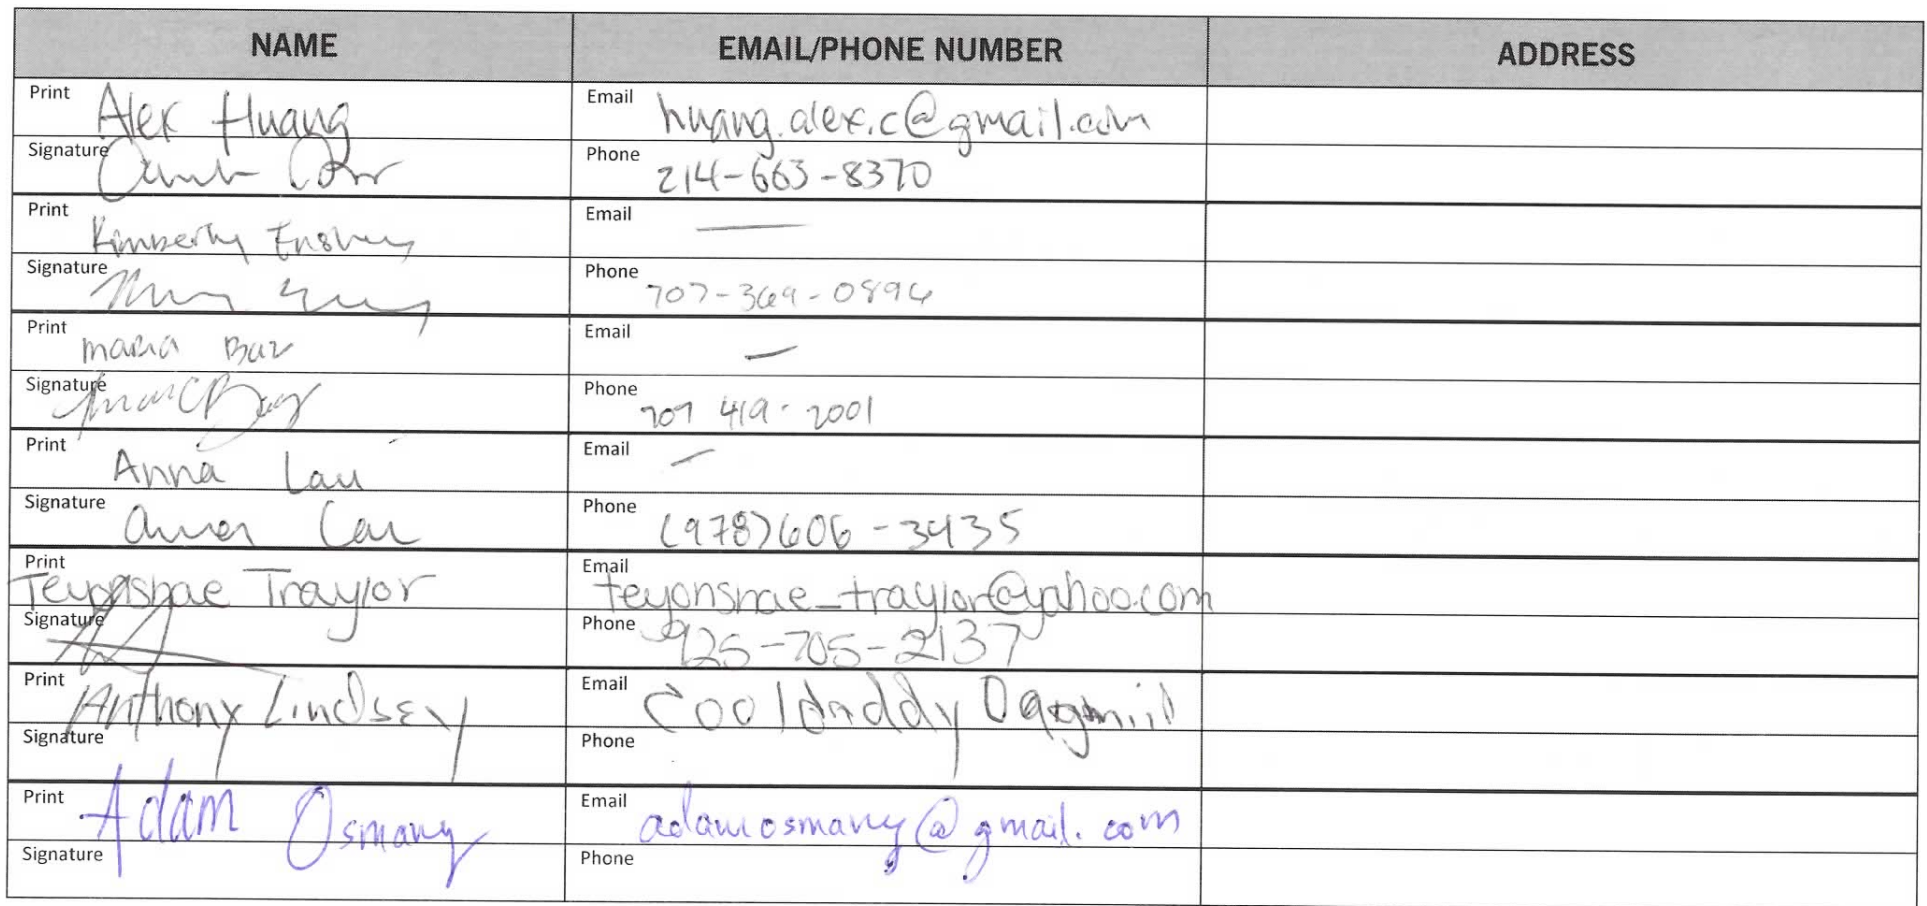 NAME EMAIL/PHONE NUMBER ADDRESS
Print Alex Huang Email huang.alex.c@gmail.com
Signature Phone 214-663-8370
Print Kimberly Email —
Signature Phone 707-369-0896
Print Maria Email —
Signature Phone 707 419-2001
Print Anna Lau Email —
Signature Anna Lau Phone (978)606-3435
Print Teyonshae Traylor Email teyonshae_traylor@yahoo.com
Signature Phone 925-705-2137
Print Anthony Lindsey Email Cooldaddy
Signature Phone
Print Adam Osmany Email adamosmany@gmail.com
Signature Phone